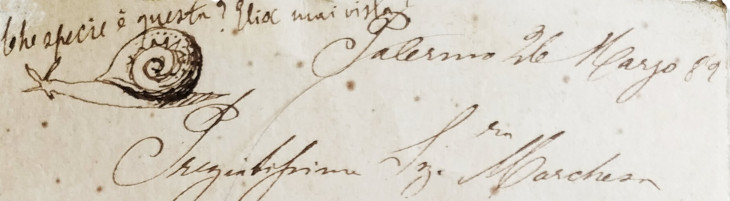 Che specie è questa? Glia mai vista?
Palermo 26 Marzo 89
Pregiatissima Sig.ra Marchesa